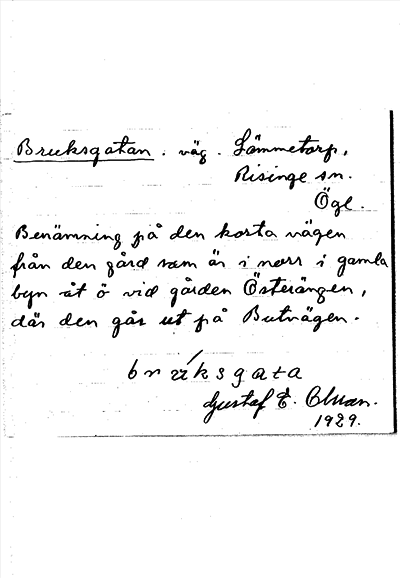 Bruksgatan. väg. Lämmetorp,
Risinge sn.
Ögl.
Benämning på den korta vägen
från den gård som är i norr i gamla
byn åt ö vid gården Österängen,
där den går ut på Butvägen.
bruksgata
Gustaf E. Olman.
1929.